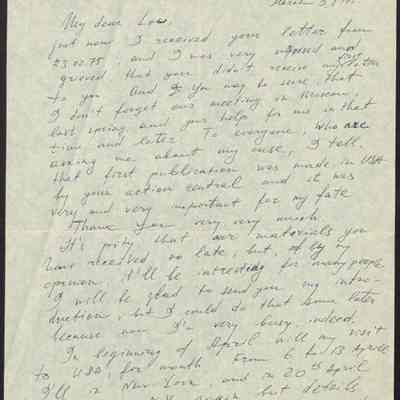 March 3
My dear Lou,
just now I received your letter from
23.02.75, and I was very and
grieved that you didn't receive my letter
to you. And you may be sure, that
I don't forget our meeting in Moscow,
last spring, and your help for me in that
time and later. To everyone, who are
asking me about my case, I tell,
that first publication was made in USA
by your action central and it was
very and very important for my fate.
Thank you very very much.
It's pity that our materials you
have received so late, but, of by my
opinion, it'll be intresting for many people.
I will be glad to send you my intro-
duction, but I could do that some later
because now I'm very busy, indeed.
In beginning of April will my visit
to USA, for month. From 6 to 13 April
I'll in New York, and in 20th April
again but details